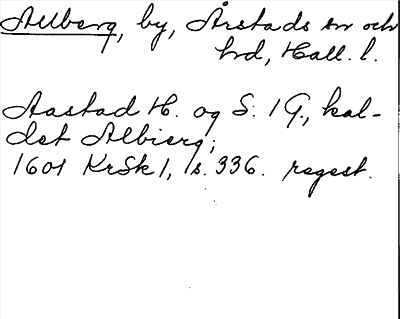 Allberg, by, Årstads sn och
hd, Hall. l.
Aastad H. og S. 1 G., kal-
det Albierg;
1601 KrSk 1, s. 336. regest.